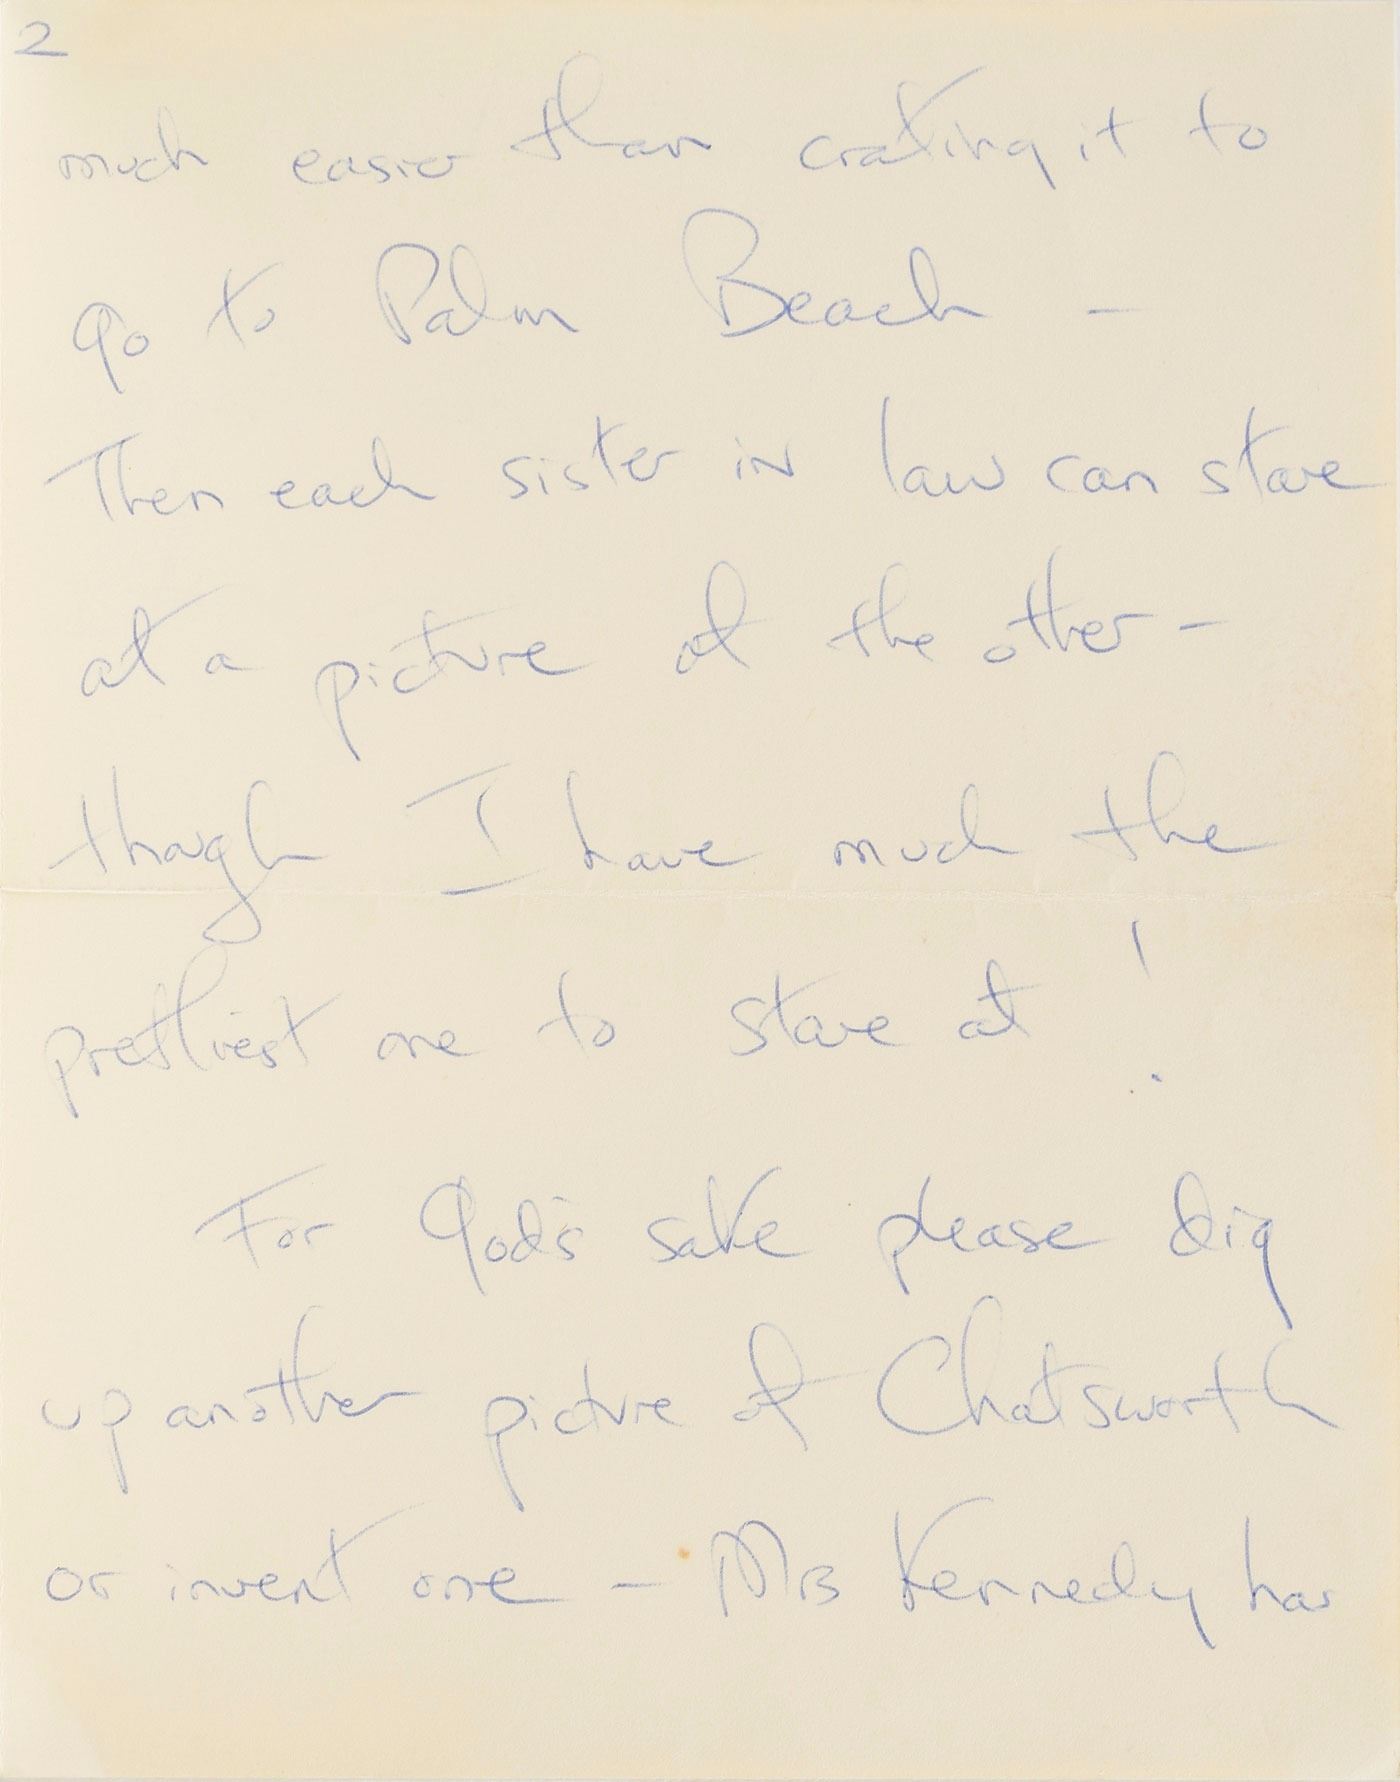 2
much easier than crating it to
go to Palm Beach —
Then each sister in law can stare
at a picture of the other —
though I have much the
prettiest one to stare at!
For God's sake please dig
up another picture of Chatsworth
or invent one — Mrs Kennedy has